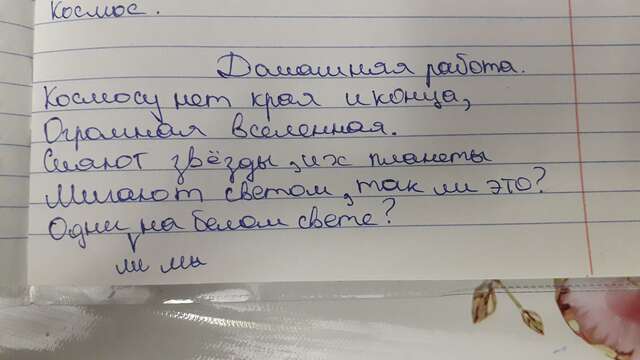 Космос.
Домашняя работа.
Космосу нет края и конца,
Огромная вселенная.
Сияют звёзды, их планеты
Мигают светом, так ли это?
Одни на белом свете?
ли мы